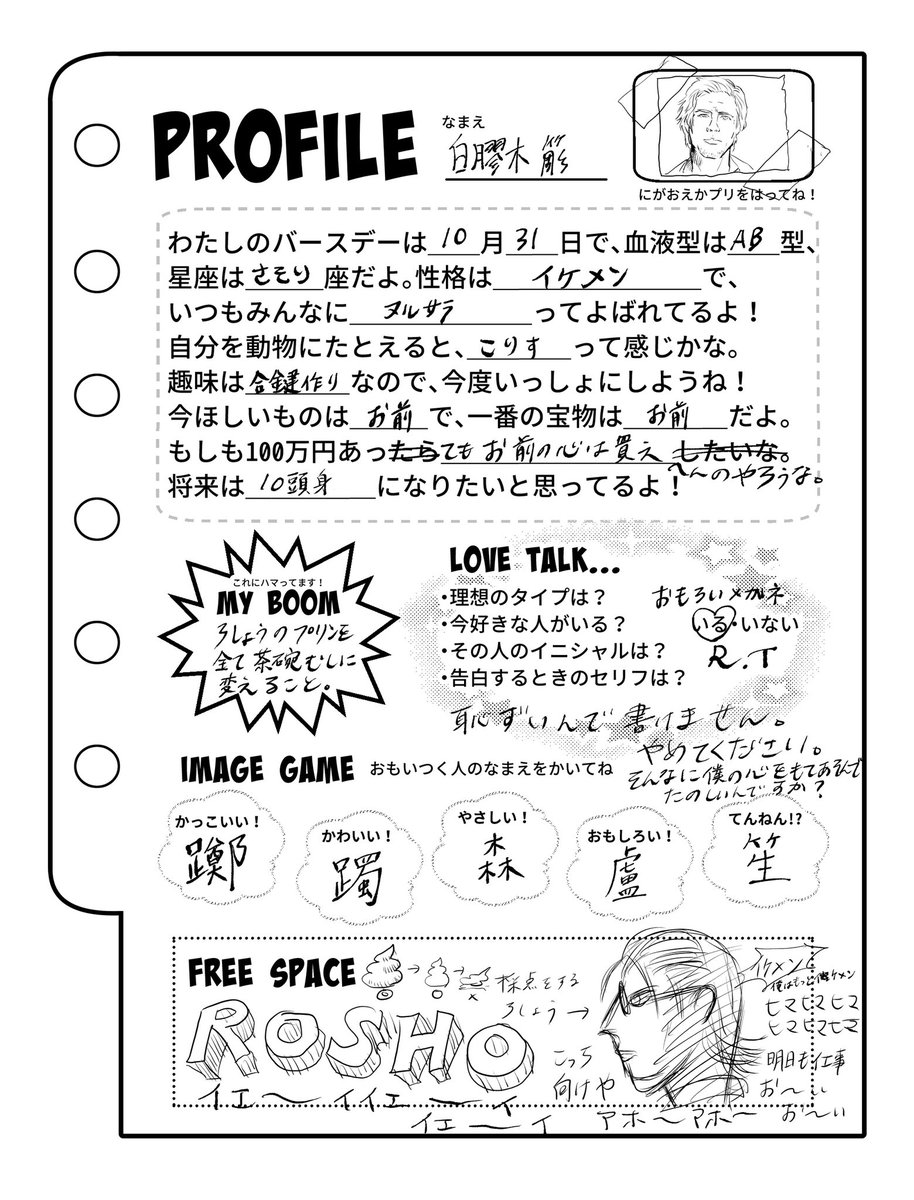 PROFILE
なまえ
白膠木 簓
にがおえかプリをはってね！
わたしのバースデーは10月31日で、血液型はAB型、
星座はさそり座だよ。性格はイケメンで、
いつもみんなにヌルサラってよばれてるよ！
自分を動物にたとえると、こりすって感じかな。
趣味は合鍵作りなので、今度いっしょにしようね！
今ほしいものはお前で、一番の宝物はお前だよ。
もしも100万円あったらてもお前の心は買えしたいな。
へんのやろうな。
将来は10頭身になりたいと思ってるよ！
これにハマってます！
MY BOOM
ろしょうのプリンを
全て茶碗むしに
変えること。
LOVE TALK...
・理想のタイプは？ おもろいメガネ
・今好きな人がいる？ いる・いない
・その人のイニシャルは？ R.T
・告白するときのセリフは？
恥ずいんで書けません。
やめてください。
そんなに僕の心をもてあそんで
たのしいんですか？
IMAGE GAME おもいつく人のなまえをかいてね
かっこいい！
躑
かわいい！
躅
やさしい！
森
おもしろい！
盧
てんねん!?
笙
FREE SPACE
採点をする
ろしょう→
ROSHO
イエ〜イイエ〜イ
イエ〜イ
こっち
向けや
アホ〜アホ〜
イケメン
僕はもっとイケメン
ヒマヒマヒマ
ヒマヒマヒマ
明日も仕事
お〜い
お〜い